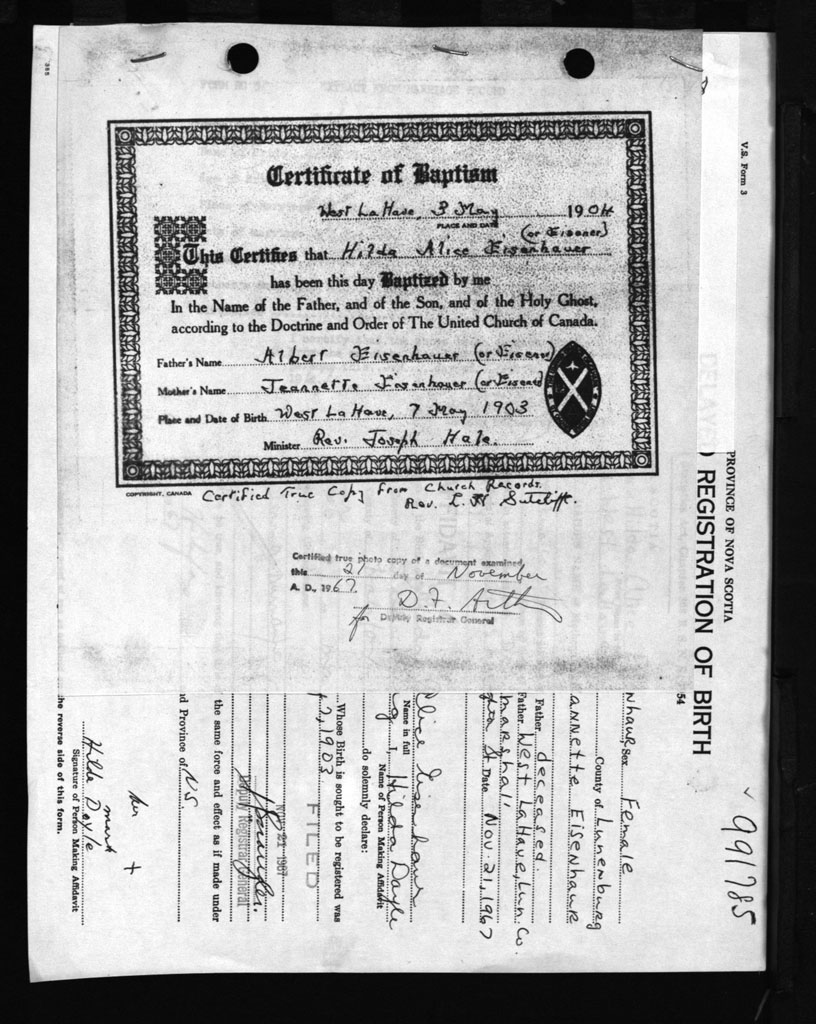 Certificate of Baptism
West LaHave, 3 May 1904
PLACE AND DATE
(or Eisener)
This Certifies that Hilda Alice Eisenhauer
has been this day Baptized by me
In the Name of the Father, and of the Son, and of the Holy Ghost,
according to the Doctrine and Order of The United Church of Canada.
Father's Name Albert Eisenhauer (or Eisener)
Mother's Name Jeannette Eisenhauer (or Eisener)
Place and Date of Birth West LaHave, 7 May 1903
Minister Rev. Joseph Hale.
COPYRIGHT, CANADA
Certified True Copy from Church Records.
Rev. L. H. Sutcliffe.
Certified true photo copy of a document examined
this 21 day of November
A. D., 1967.
for
Deputy Registrar General
V.S. Form 3
PROVINCE OF NOVA SCOTIA
REGISTRATION OF BIRTH
991785
54
Sex Female
County of Lunenburg
annette Eisenhaur
Father deceased.
Father West LaHave, Lun. Co.
Marshall
St Date Nov. 21, 1967
lice Eisenhaur
Name in full
I, Hilda Doyle
Name of Person Making Affidavit
do solemnly declare:
Whose Birth is sought to be registered was
7, 1903
FILED
NOV 21 1967
Deputy Registrar General
the same force and effect as if made under
d Province of N.S.
her
mark +
Hilda Doyle
Signature of Person Making Affidavit
he reverse side of this form.